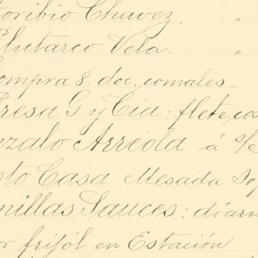 Toribio Chavez. "
Plutarco Vela. "
Compra 8 doc. comales
Presa G y Cia: flete cos
nzalo Arreola á s/c
sto Casa. Mesada Se
nillas Sauces: diari
or frijól en Estación